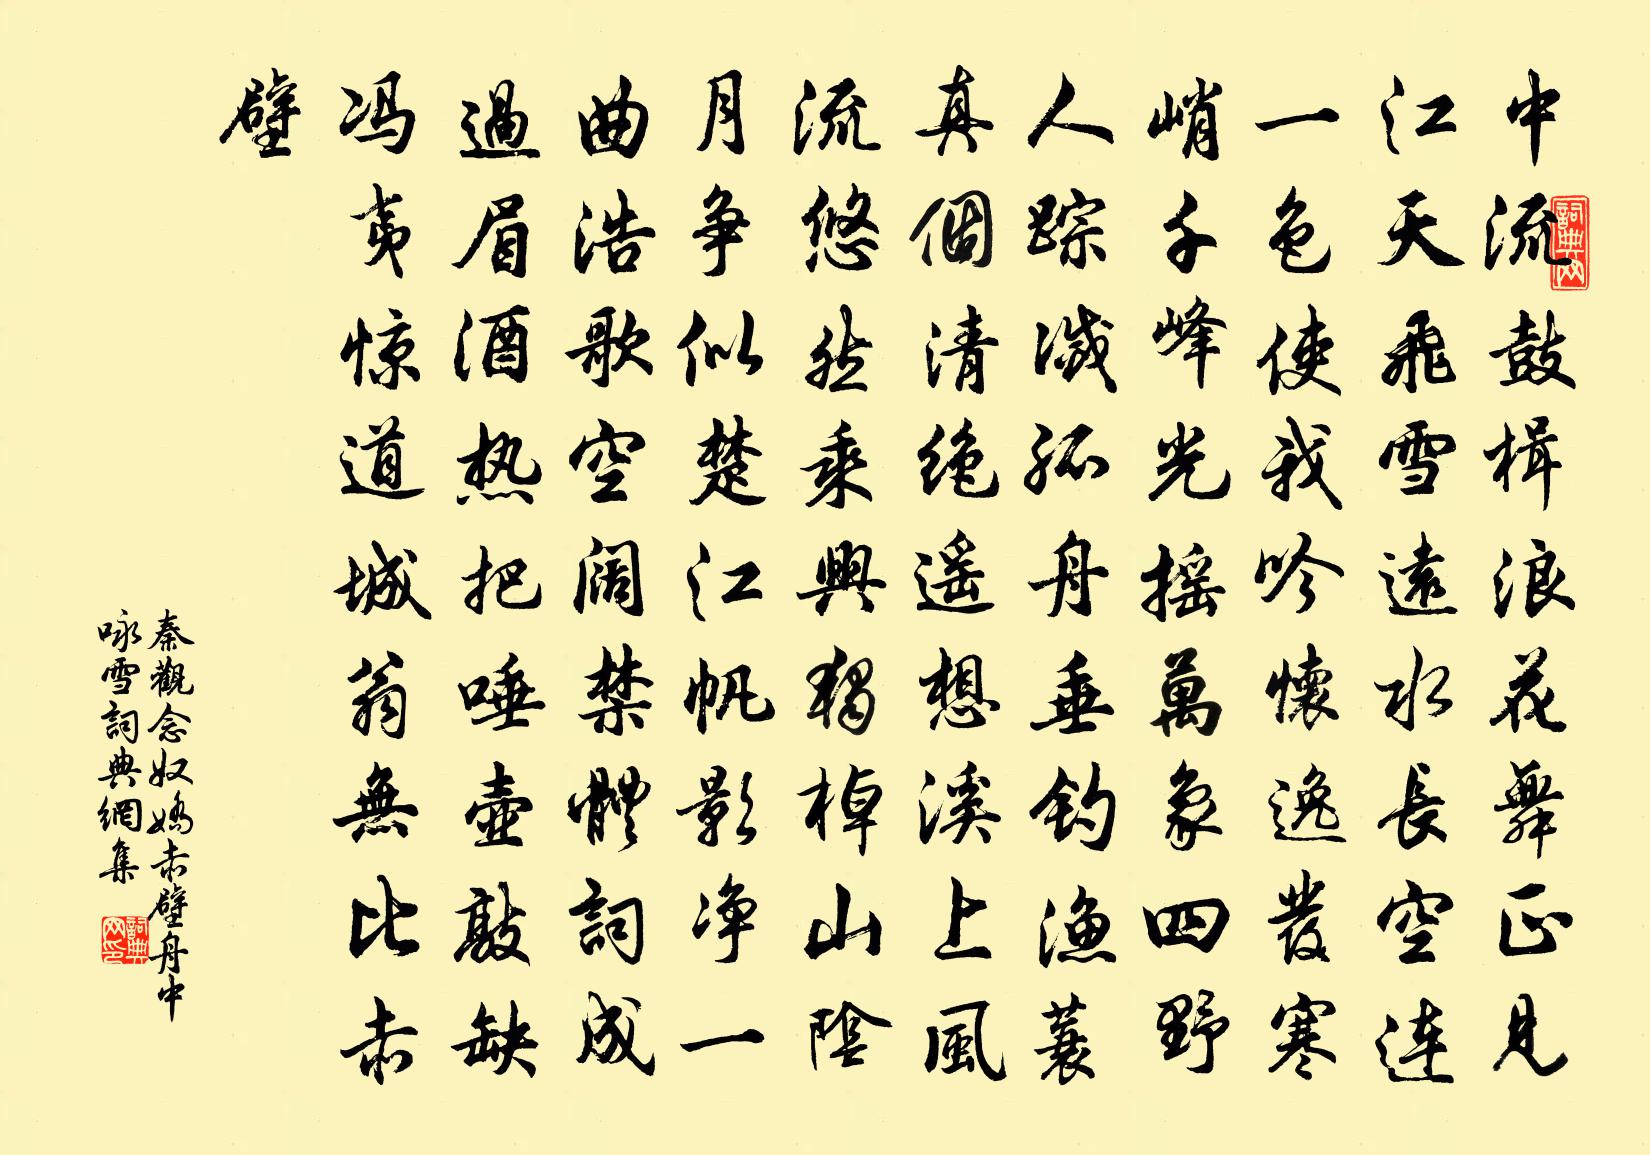 中流鼓楫浪花舞正見
江天飛雪遠水長空連
一色使我吟懷逸發寒
峭千峰光摇萬象四野
人踪滅孤舟垂釣漁蓑
真個清絶遥想溪上風
流悠然乘興獨棹山陰
月争似楚江帆影净一
曲浩歌空阔禁體詞成
過眉酒热把唾壺敲缺
冯夷惊道城翁無比赤
壁
秦觀念奴嬌赤壁舟中
咏雪詞典網集
詞典网
詞典网印